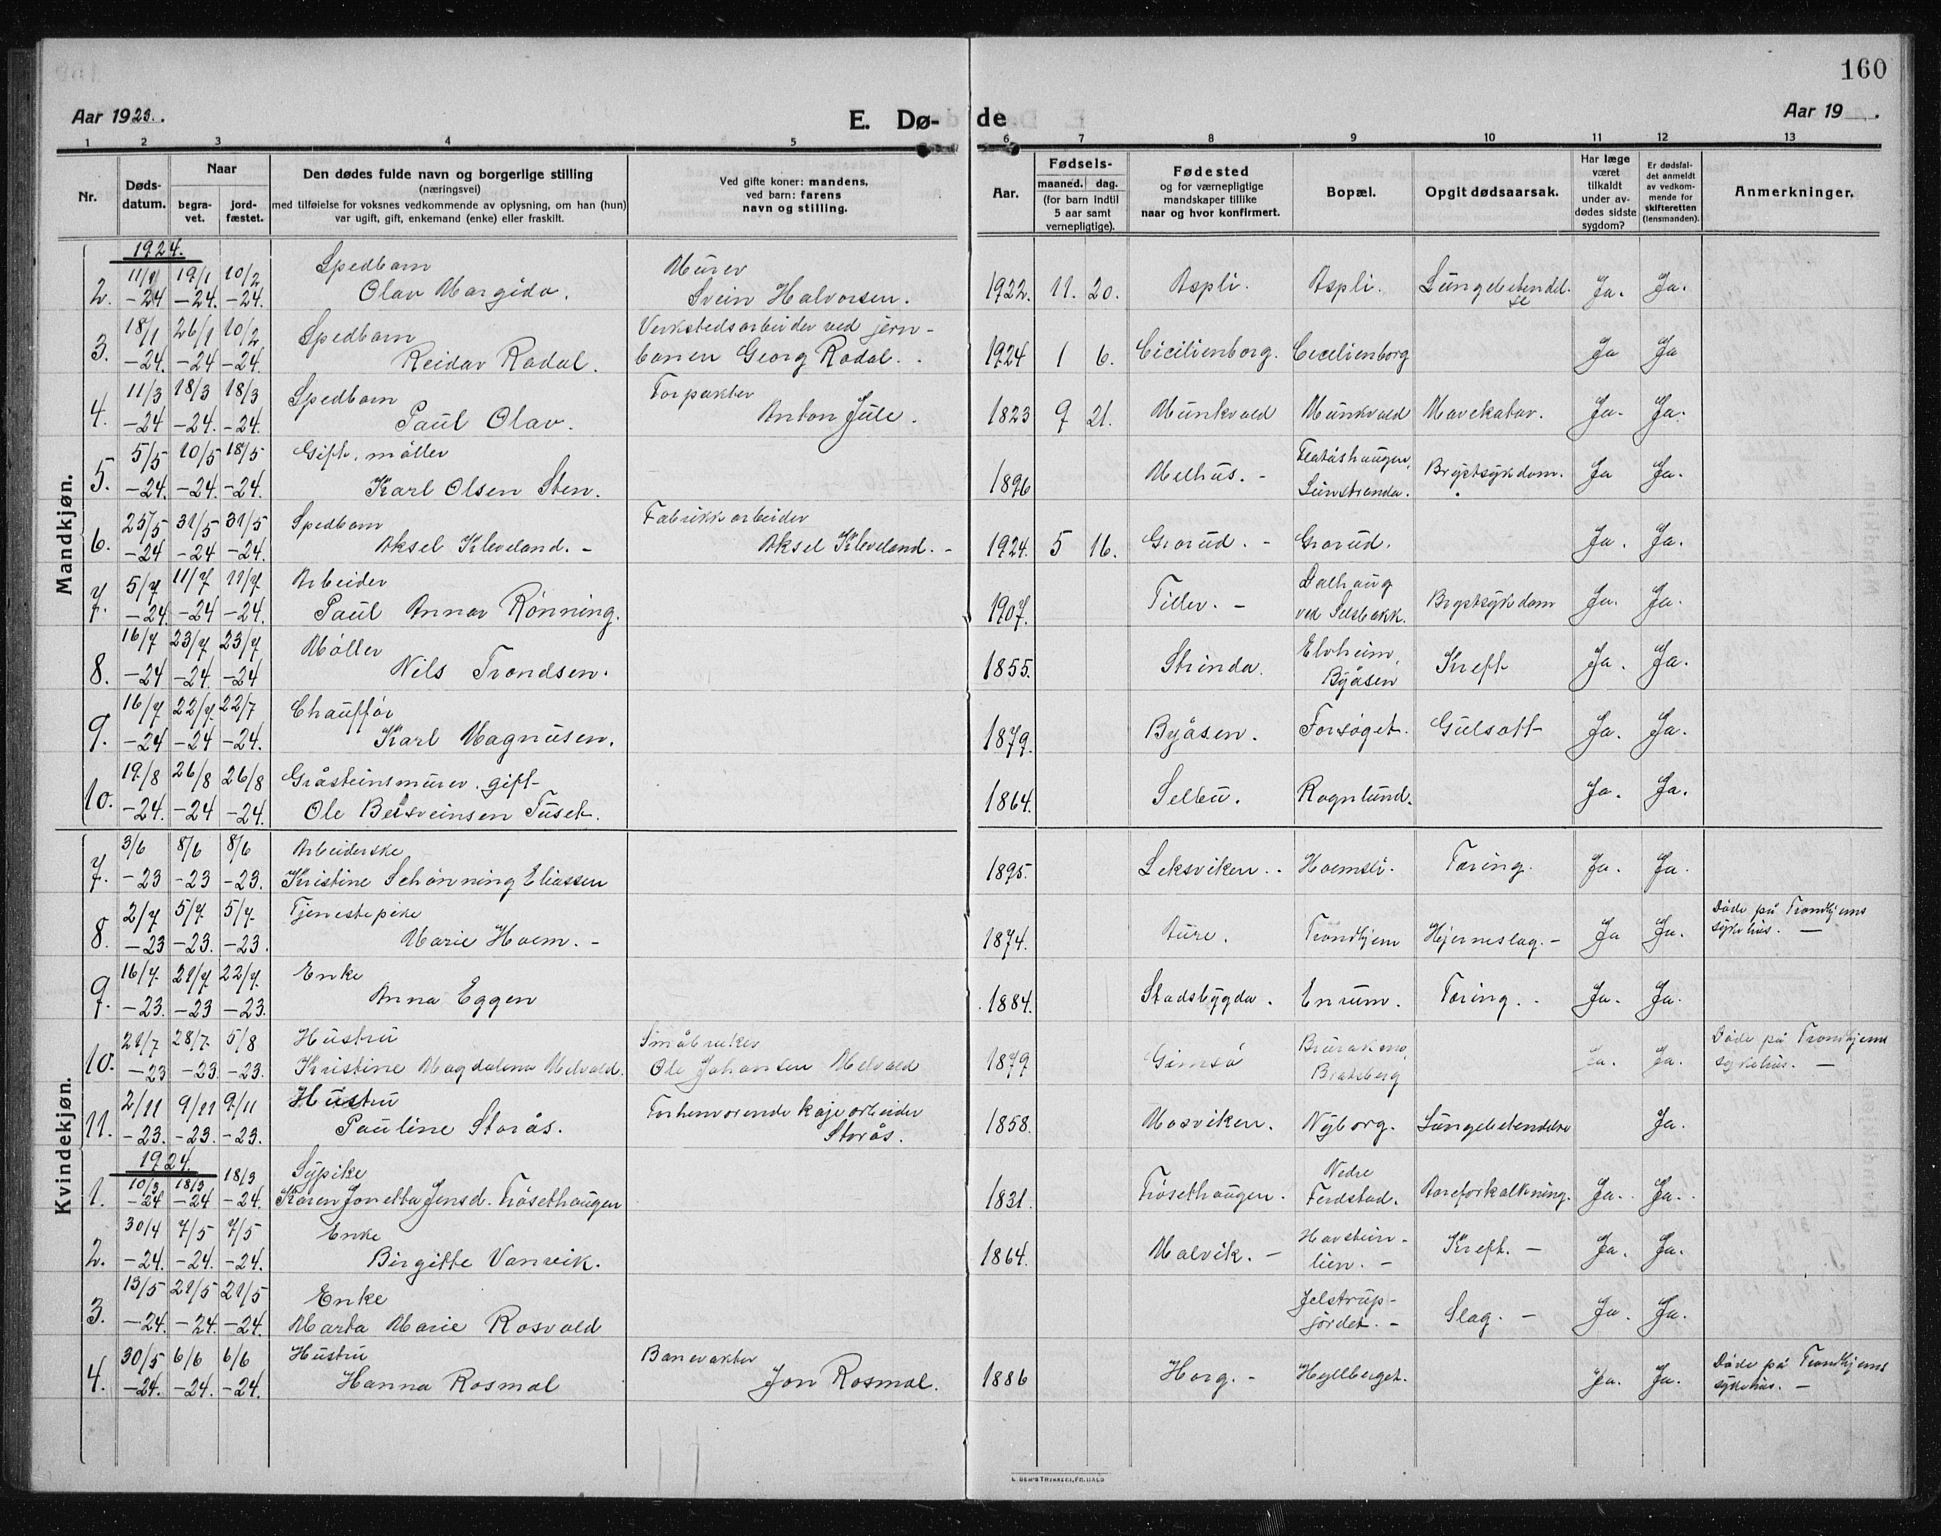 160
Aar 1923.
E. Dø-
de
Aar 19 .
1 2 3 4 5 6 7 8 9 10 11 12 13
Nr.
Døds-
datum.
Naar
begra-
vet.
jord-
fæstet.
Den dødes fulde navn og borgerlige stilling
(næringsvei)
med tilføielse for voksnes vedkommende av oplysning, om han (hun)
var ugift, gift, enkemand (enke) eller fraskilt.
Ved gifte koner: mandens,
ved barn: farens
navn og stilling.
Aar.
Fødsels-
maaned. dag.
(for barn indtil
5 aar samt
vernepligtige).
Fødested
og for værnepligtige
mandskaper tillike
naar og hvor konfirmert.
Bopæl.
Opgit dødsaarsak.
Har læge
været
tilkaldt
under av-
dødes sidste
sygdom?
Er dødsfal-
det anmeldt
av vedkom-
mende for
skifteretten
(lensmanden).
Anmerkninger.
Mandkjøn.
1924.
11/1 19/1 10/2 Spedbarn Murer
2. -24 -24. -24. Olav Margido. Svein Halvorsen. 1922. 11. 20. Aspli. Aspli. Lungebetendel-
se Ja. Ja.
18/1 26/1 10/2 Spedbarn Verkstedsarbeider ved jern-
3. -24. -24 -24. Reidar Rodal. banen Georg Rodal. 1924 1 6. Cicilienborg. Cecilienborg Ja Ja
11/3 18/3 18/3 Spedbarn Torpakter
4. -24 -24. -24. Paul Olav. Anton Jule. 1823 9 21. Munkvold Munkvold Mavekatar. Ja. Ja.
5/5 10/5 18/5 Gift, møller
5. -24. -24. -24. Karl Olsen Sten. 1896 Melhus. - Flatåshaugen,
Sunstranda. Brystsykdom. Ja Ja.
25/5 31/5 31/5 Spedbarn Fabrikkarbeider
6. -24 -24 -24. Aksel Kleveland. - Aksel Kleveland. - 1924. 5 16. Grorud. - Grorud. Ja. Ja.
5/7 11/7 11/7 Arbeider
7. -24. -24 -24. Paul Annar Rønning. 1907. Tiller. - Dalhaug
ved Selsbakk. Brystsykdom Ja. Ja.
16/7 23/7 23/7 Møller
8. -24. -24. -24 Nils Trondsen. 1855. Strinda. Elvheim,
Byåsen Kreft Ja. Ja.
16/7 22/7. 22/7 Chauffør
9. -24 -24 -24. Karl Magnusen. 1879. Byåsen. Forsøget. Gulsott Ja. Ja.
19/8 26/8 26/8 Gråsteinsmurer. gift-
10. -24. -24 -24. Ole Bersveinsen Tusek. 1864. Selbu. Rognlund. Ja. Ja.
Kvindekjøn.
3/6 8/6 8/6 Arbeiderske
7. -23 -23 -23. Kristine Schønning Eliassen 1895. Leksviken. . Hoemsli. Tæring. Ja. Ja.
2/7 5/7. 5/7. Tjenestepike
8. -23 -23. -23. Marie Hoem. - 1874. Aure. Trondhjem Hjerneslag. - Ja Ja. Døde på Trondhjems
sykehus. -
16/7. 21/7 22/7. Enke
9. -23. -23 -23. Anna Eggen 1884. Stadsbygda. Enrum. Tæring. - Ja. Ja.
21/7 28/7 5/8 Hustru Småbruker
10. -23 -23. -23. Kristine Magdalena Melvold. Ole Johansen Melvold 1879 Gimsø
Bratsberg Ja. Ja. Døde på Trondhjems
sykehus. -
2/11 9/11 9/11 Hustru Forhenværende kaiearbeider
11. -23. -23. -23. Pauline Storås. Storås. 1858. Mosviken. Nyborg. Lungebetendelse Ja.
1924.
10/3 18/3 18/3 Sypike
1. -24 -24 -24. Karen Jonetta Jensd. Trøsethaugen 1831. Trøsethaugen. Nedre
Ferdstad. Aareforkalkning. Ja. Ja.
30/4 7/5 7/5 Enke
2. -24. -24. -24. Birgitte Vanvik. 1864. Malvik. - Havstein-
lien. - Kreft. - Ja. Ja.
13/5 21/5 21/5 Enke
3. -24. -24. -24. Marta Marie Rosvold Jelstrup-
jordet. - Slag. - Ja. Ja.
30/5 6/6 6/6 Hustru Banevakter
4. -24. -24. -24. Hanna Rosmal Jon Rosmal. 1886 Horg. - Hyllberget. Ja. Ja. Døde på Trondhjems
sykehus. -